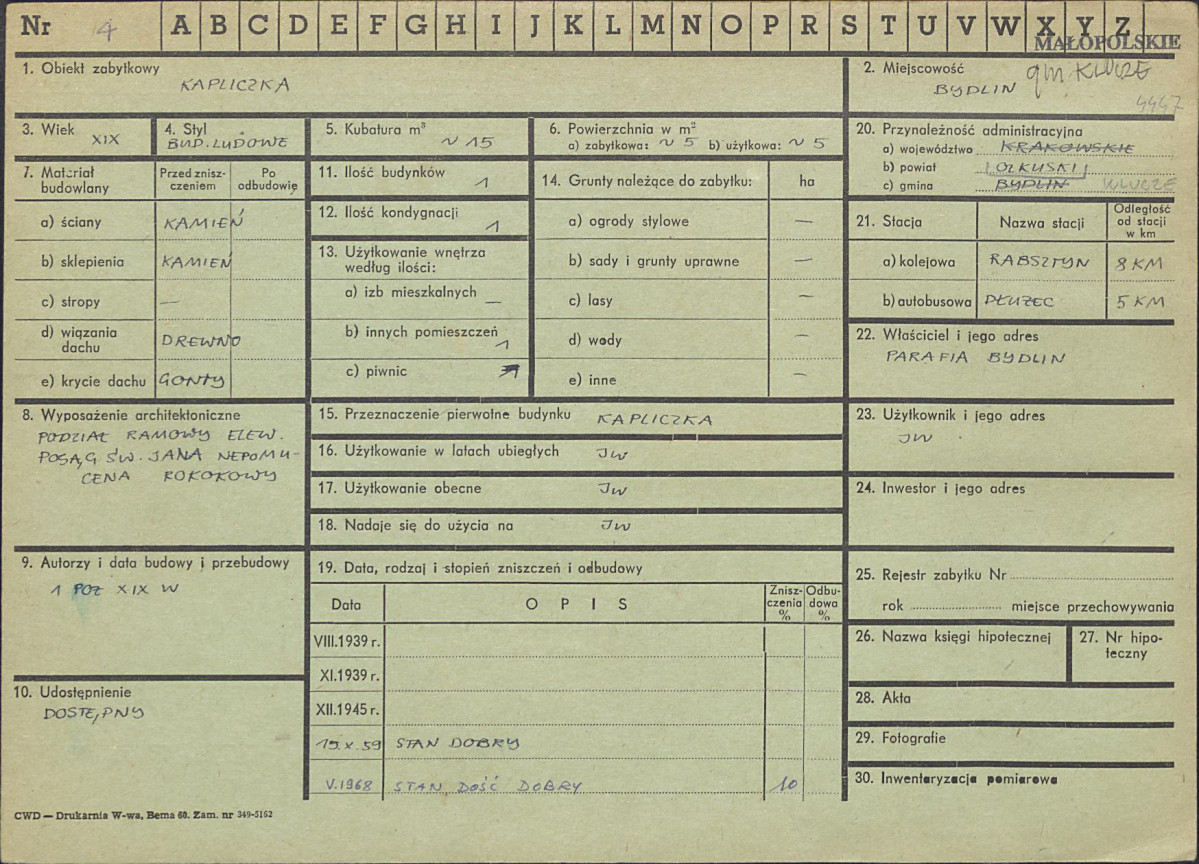 Nr 4 A B C D E F G H I J K L M N O P R S T U V W X Y Z
MAŁOPOLSKIE
1. Obiekt zabytkowy
KAPLICZKA
2. Miejscowość gm KLUCZE
BYDLIN
4447
3. Wiek
XIX
4. Styl
BUD. LUDOWE
5. Kubatura m³
~ 15
6. Powierzchnia w m²
a) zabytkowa: ~ 5 b) użytkowa: ~ 5
7. Materiał budowlany
Przed znisz-
czeniem
Po
odbudowie
a) ściany KAMIEŃ
b) sklepienia KAMIEŃ
c) stropy —
d) wiązania
dachu DREWNO
e) krycie dachu GONTY
8. Wyposażenie architektoniczne
PODZIAŁ RAMOWY ELEW.
POSĄG ŚW. JANA NEPOMU-
CENA ROKOKOWY
9. Autorzy i data budowy i przebudowy
1 POŁ XIX W
10. Udostępnienie
DOSTĘPNY
11. Ilość budynków
1
12. Ilość kondygnacji
1
13. Użytkowanie wnętrza
według ilości:
a) izb mieszkalnych —
b) innych pomieszczeń
1
c) piwnic
14. Grunty należące do zabytku: ha
a) ogrody stylowe —
b) sady i grunty uprawne —
c) lasy —
d) wody —
e) inne —
15. Przeznaczenie pierwotne budynku KAPLICZKA
16. Użytkowanie w latach ubiegłych JW
17. Użytkowanie obecne JW
18. Nadaje się do użycia na JW
19. Data, rodzaj i stopień zniszczeń i odbudowy
Data
OPIS
Znisz-
czenia
%
Odbu-
dowa
%
VIII.1939 r.
XI.1939 r.
XII.1945 r.
15.X.59 STAN DOBRY
V.1968 STAN DOŚĆ DOBRY 10
20. Przynależność administracyjna
a) województwo KRAKOWSKIE
b) powiat OLKUSKI
c) gmina BYDLIN KLUCZE
21. Stacja
Nazwa stacji
Odległość
od stacji
w km
a) kolejowa RABSZTYN 8 KM
b) autobusowa DŁUŻEC 5 KM
22. Właściciel i jego adres
PARAFIA BYDLIN
23. Użytkownik i jego adres
JW
24. Inwestor i jego adres
25. Rejestr zabytku Nr
rok miejsce przechowywania
26. Nazwa księgi hipotecznej
27. Nr hipo-
teczny
28. Akta
29. Fotografie
30. Inwentaryzacja pomiarowa
CWD — Drukarnia W-wa, Bema 60. Zam. nr 349-5162